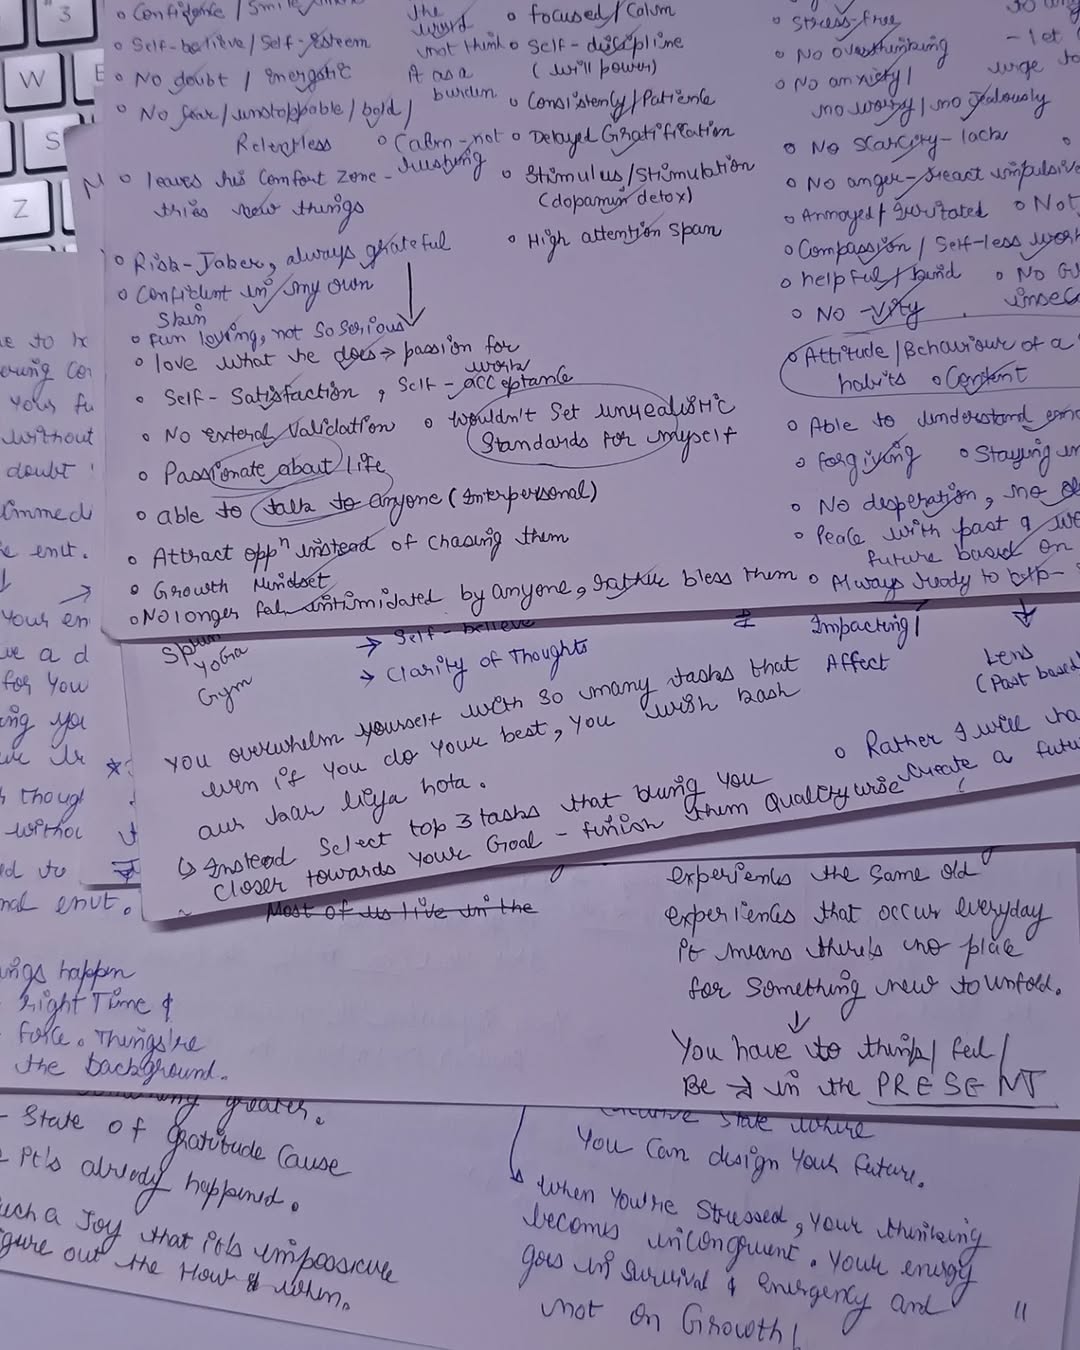 3
W
E
S
Z
o Confidence / Smile
o Self-believe / Self-Esteem
o No doubt / energetic
o No fear / unstoppable / bold /
Relentless
o leaves his comfort zone -
tries new things
o Risk-Taker, always grateful
o Confident in my own
Skin
o fun loving, not so serious
o love what he does → passion for
work
o Self-Satisfaction, Self-acceptance
o No exteral Validation
o Passionate about life
o able to talk to anyone (Interpersonal)
o Attract oppⁿ instead of chasing them
o Growth Mindset
o No longer feel intimidated by anyone, rather bless them
the
word
not think
it as a
burden
o Calm - not
rushing
o wouldn't set unrealistic
Standards for myself
o focused / Calm
o Self-discipline
(will power)
o Consistency / Patience
o Delayed Gratification
o Stimulus / Stimulation
(dopamin detox)
o High attention span
o Stress-free
o No overthinking
o No anxiety /
no worry / no jealously
o No scarcity - lack
o No anger - react impulsive
o Annoyed / Irritated o Not
o Compassion / Self-less work
o helpful / kind o No
o No -vity
o Attitude / Behaviour of a
habits o Content
o Able to understand
o forgiving o Staying
o No desperation, no
o Peace with past &
future based on
o Always ready to help -
- let
urge to
Yoga
Gym
→ Self-believe
→ Clarity of Thoughts
Impacting /
Affect
Lens
(Past based
You overwhelm yourself with so many tasks that
even if you do your best, you wish kash
aur kaar liya hota.
↳ Instead Select top 3 tasks that bring you
closer towards your Goal - finish them Qualitywise
o Rather I will
create a
Most of us live in the
experiences the same old
experiences that occur everyday
it means there's no place
for something new to unfold.
↓
You have to think / feel /
Be → in the PRESENT
without
doubt
your
for you
envt.
happen
right Time &
force. Things're
the background.
greater.
- State of Gratitude Cause
it's already happened.
such a Joy that it's impossible
figure out the How & when.
state where
You can design your future.
↳ when you're stressed, your thinking
becomes incongruent. Your energy
goes in survival & emergency and
not on Growth!
11